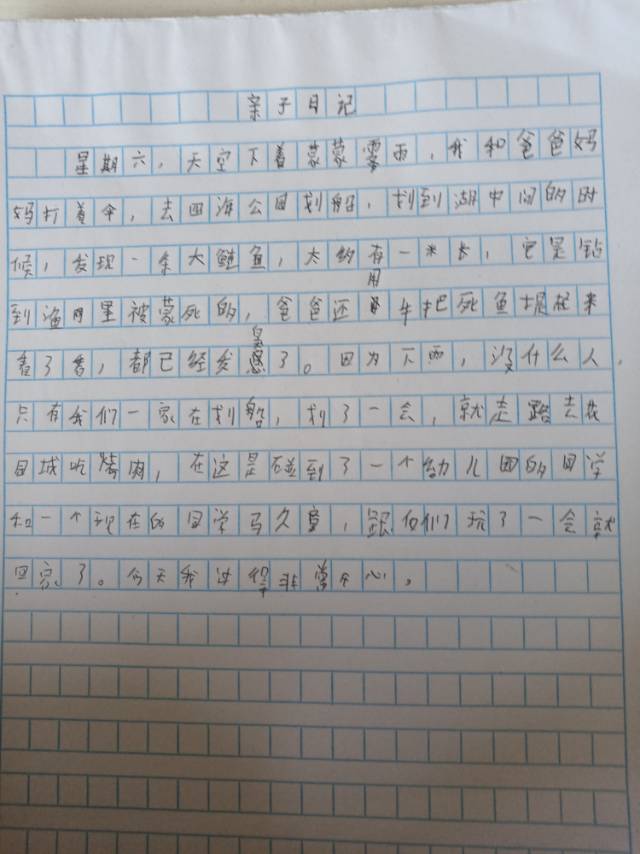 亲子日记
星期六，天空下着蒙蒙雾雨，我和爸爸妈
妈打着伞，去四海公园划船，划到湖中间的时
候，发现一条大鲢鱼，大约有一米长，它是钻
到渔网里被蒙死的，爸爸还用手把死鱼提起来
看了看，都已经发臭了。因为下雨，没什么人
只有我们一家在划船，划了一会，就走路去花
园城吃烤肉，在这是碰到了一个幼儿园的同学
和一个现在的同学马久宜，跟他们玩了一会就
回家了。今天我过得非常开心。